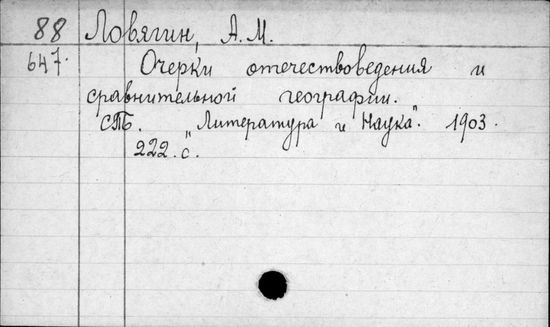 88 Ловягин, А.М.
647. Очерки отечествоведения и
сравнительной географии.
СПБ. „Литература и Наука". 1903.
222. с.